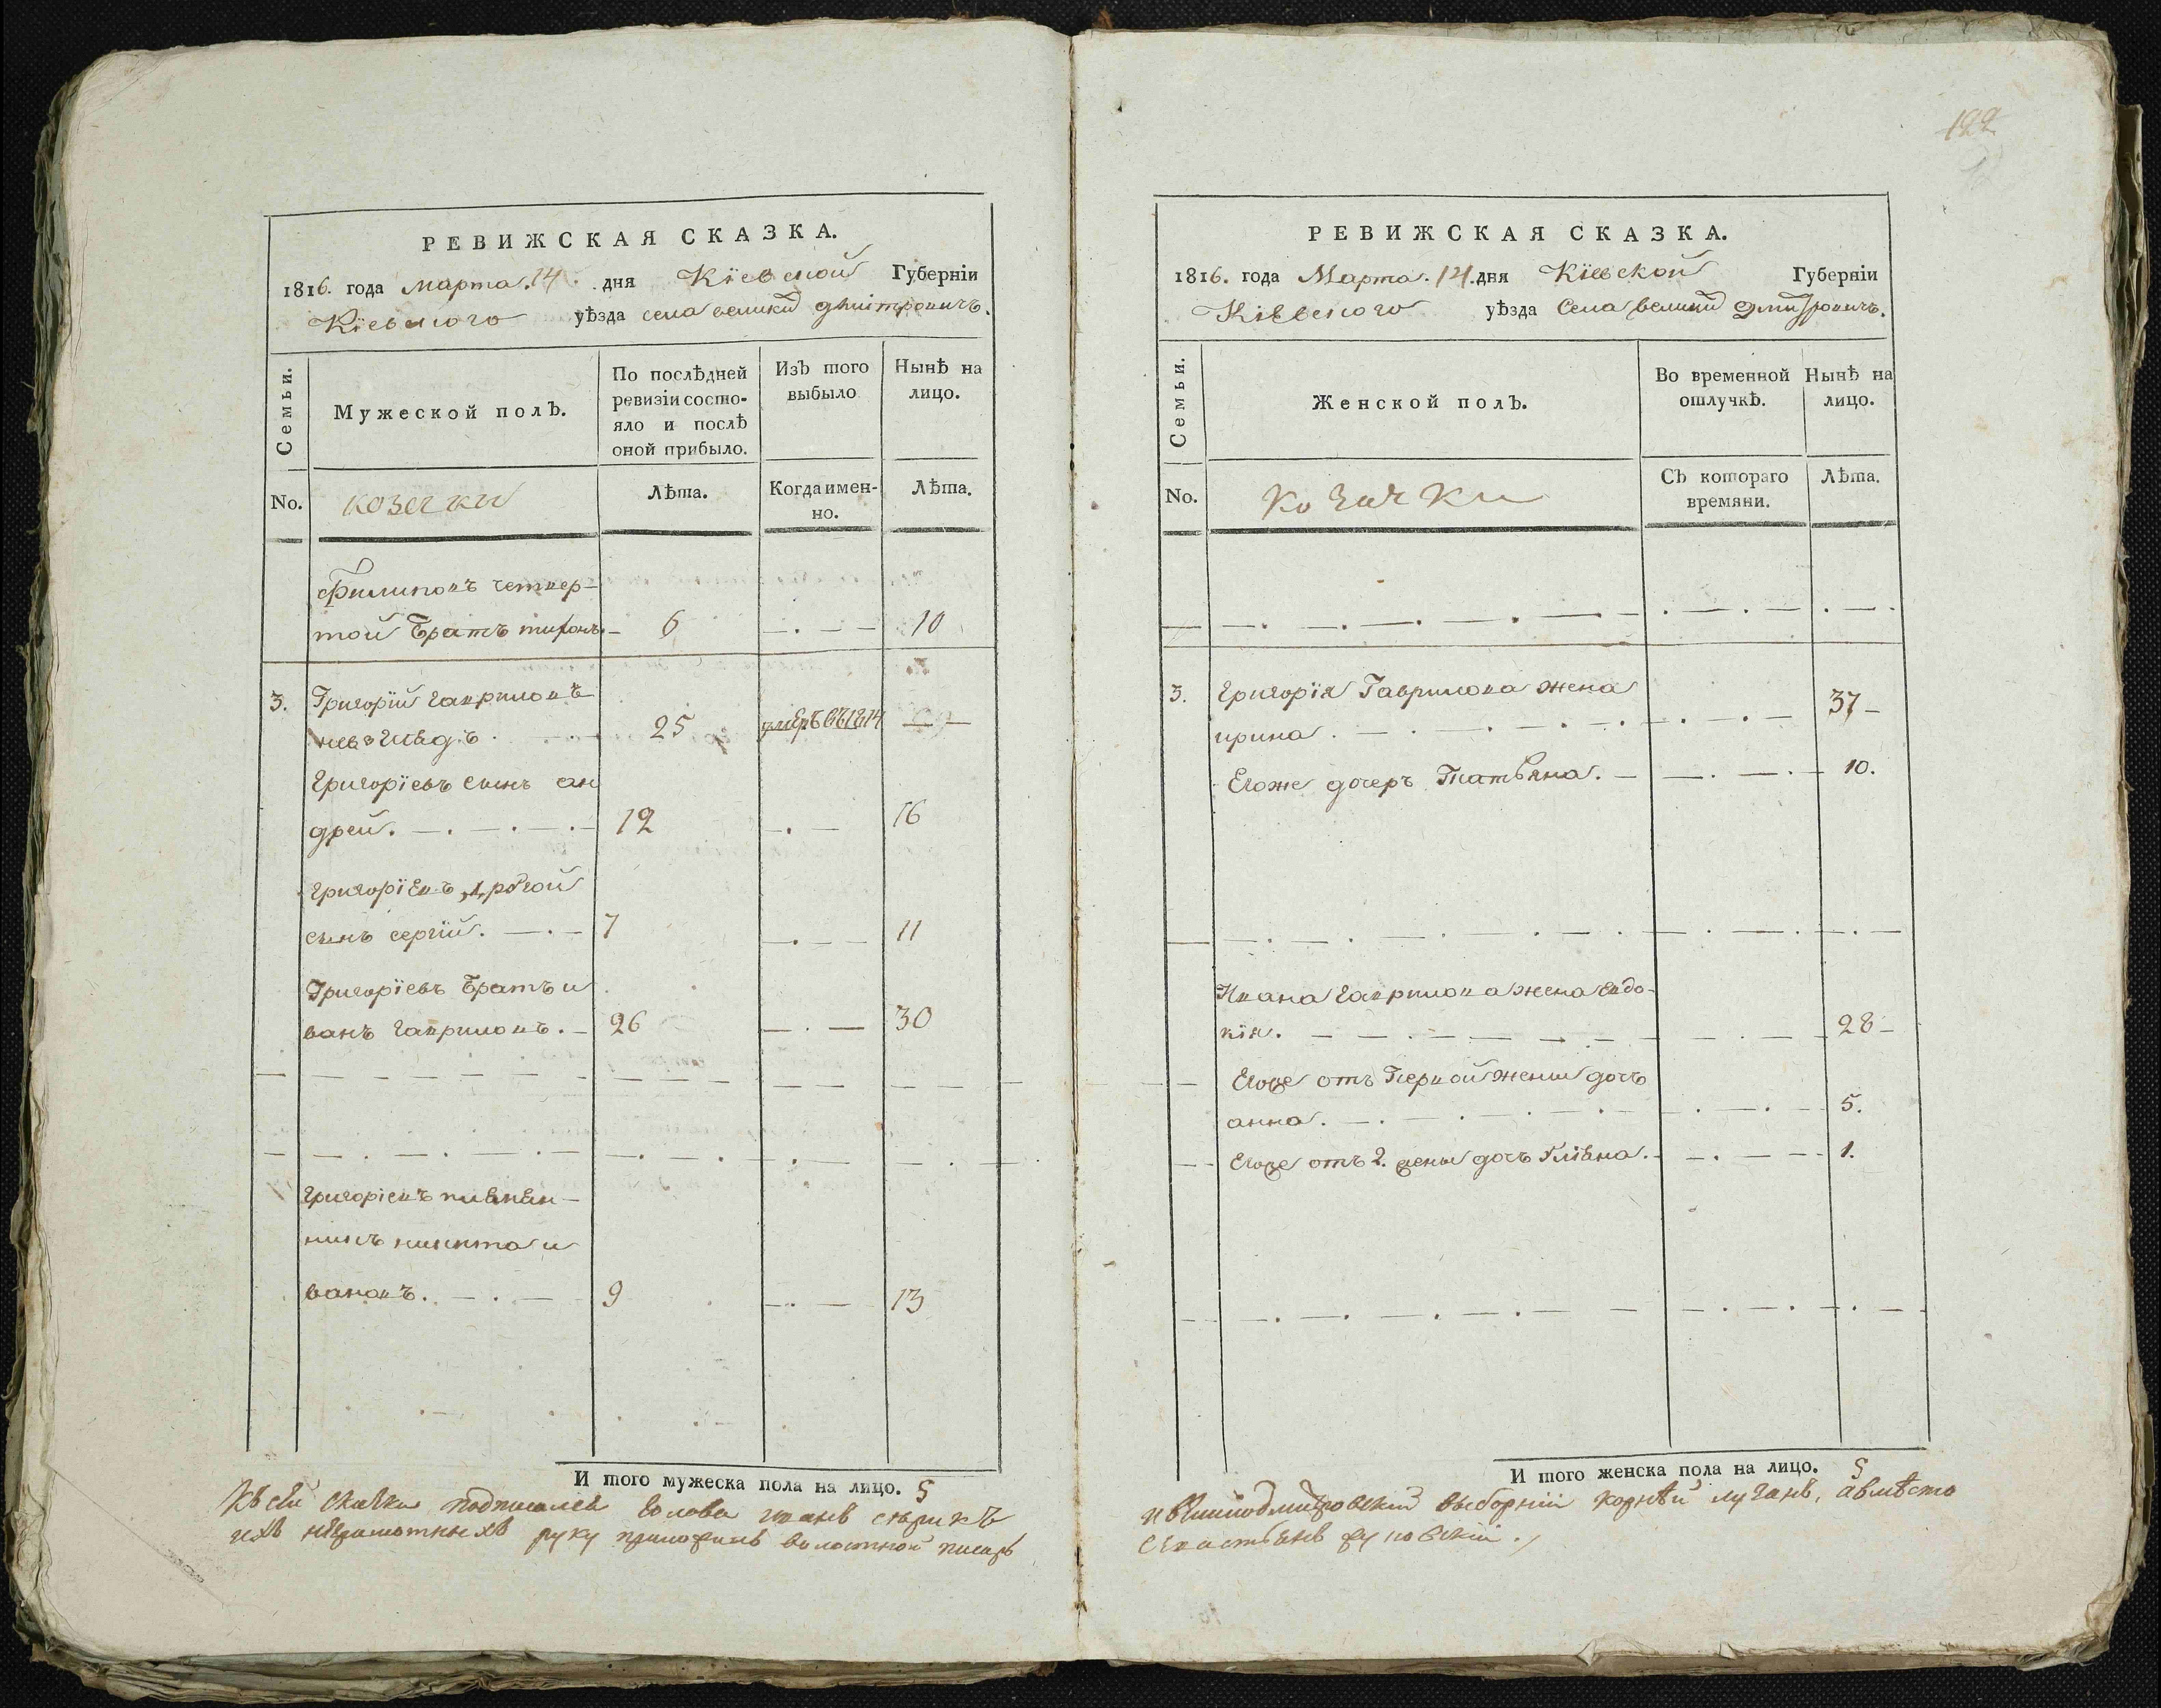 РЕВИЖСКАЯ СКАЗКА.
1816. года марта. 14. дня Кїевской Губерніи
Кїевского уѣзда села великй дмитровичъ.
Семьи.
Мужеской полъ.
По послѣдней
ревизіи состо-
яло и послѣ
оной прибыло.
Изъ того
выбыло
Нынѣ на
лицо.
No.
козачки
Лѣта.
Когда имен-
но.
Лѣта.
Филиповъ четвер-
той братъ тихонъ. 6 10
3. Григорїй гавриловъ
25 умеръ въ 1814
григорїевъ сынъ ан
дрей. 12 16
григорїевъ другой
сынъ сергїй. 7 11
Григорїевъ братъ и
ванъ гавриловъ. 26 30
григорїевъ племѣн-
никъ никита и
вановъ. 9 13
И того мужеска пола на лицо. 5
Къ сей скаски подписался голова иванъ
ихъ неграмотныхъ руку приложилъ волостной писарь
122
РЕВИЖСКАЯ СКАЗКА.
1816. года Марта. 14. дня Кїевской Губерніи
Кїевского уѣзда Села великй дмитровичъ.
Семьи.
Женской полъ.
Во временной
отлучкѣ.
Нынѣ на
лицо.
No.
Козачки
Съ котораго
времяни.
Лѣта.
3. григорїя Гаврилова жена
ирина. 37
Егоже дочеръ Татьяна. 10.
Ивана гаврилова жена евдо-
кїя. 28
Егоже отъ Первой жены дочь
анна. 5.
Егоже отъ 2. жены дочь Улїяна. 1.
И того женска пола на лицо. 5
выборнїй корнѣй лучанъ, а вмѣсто